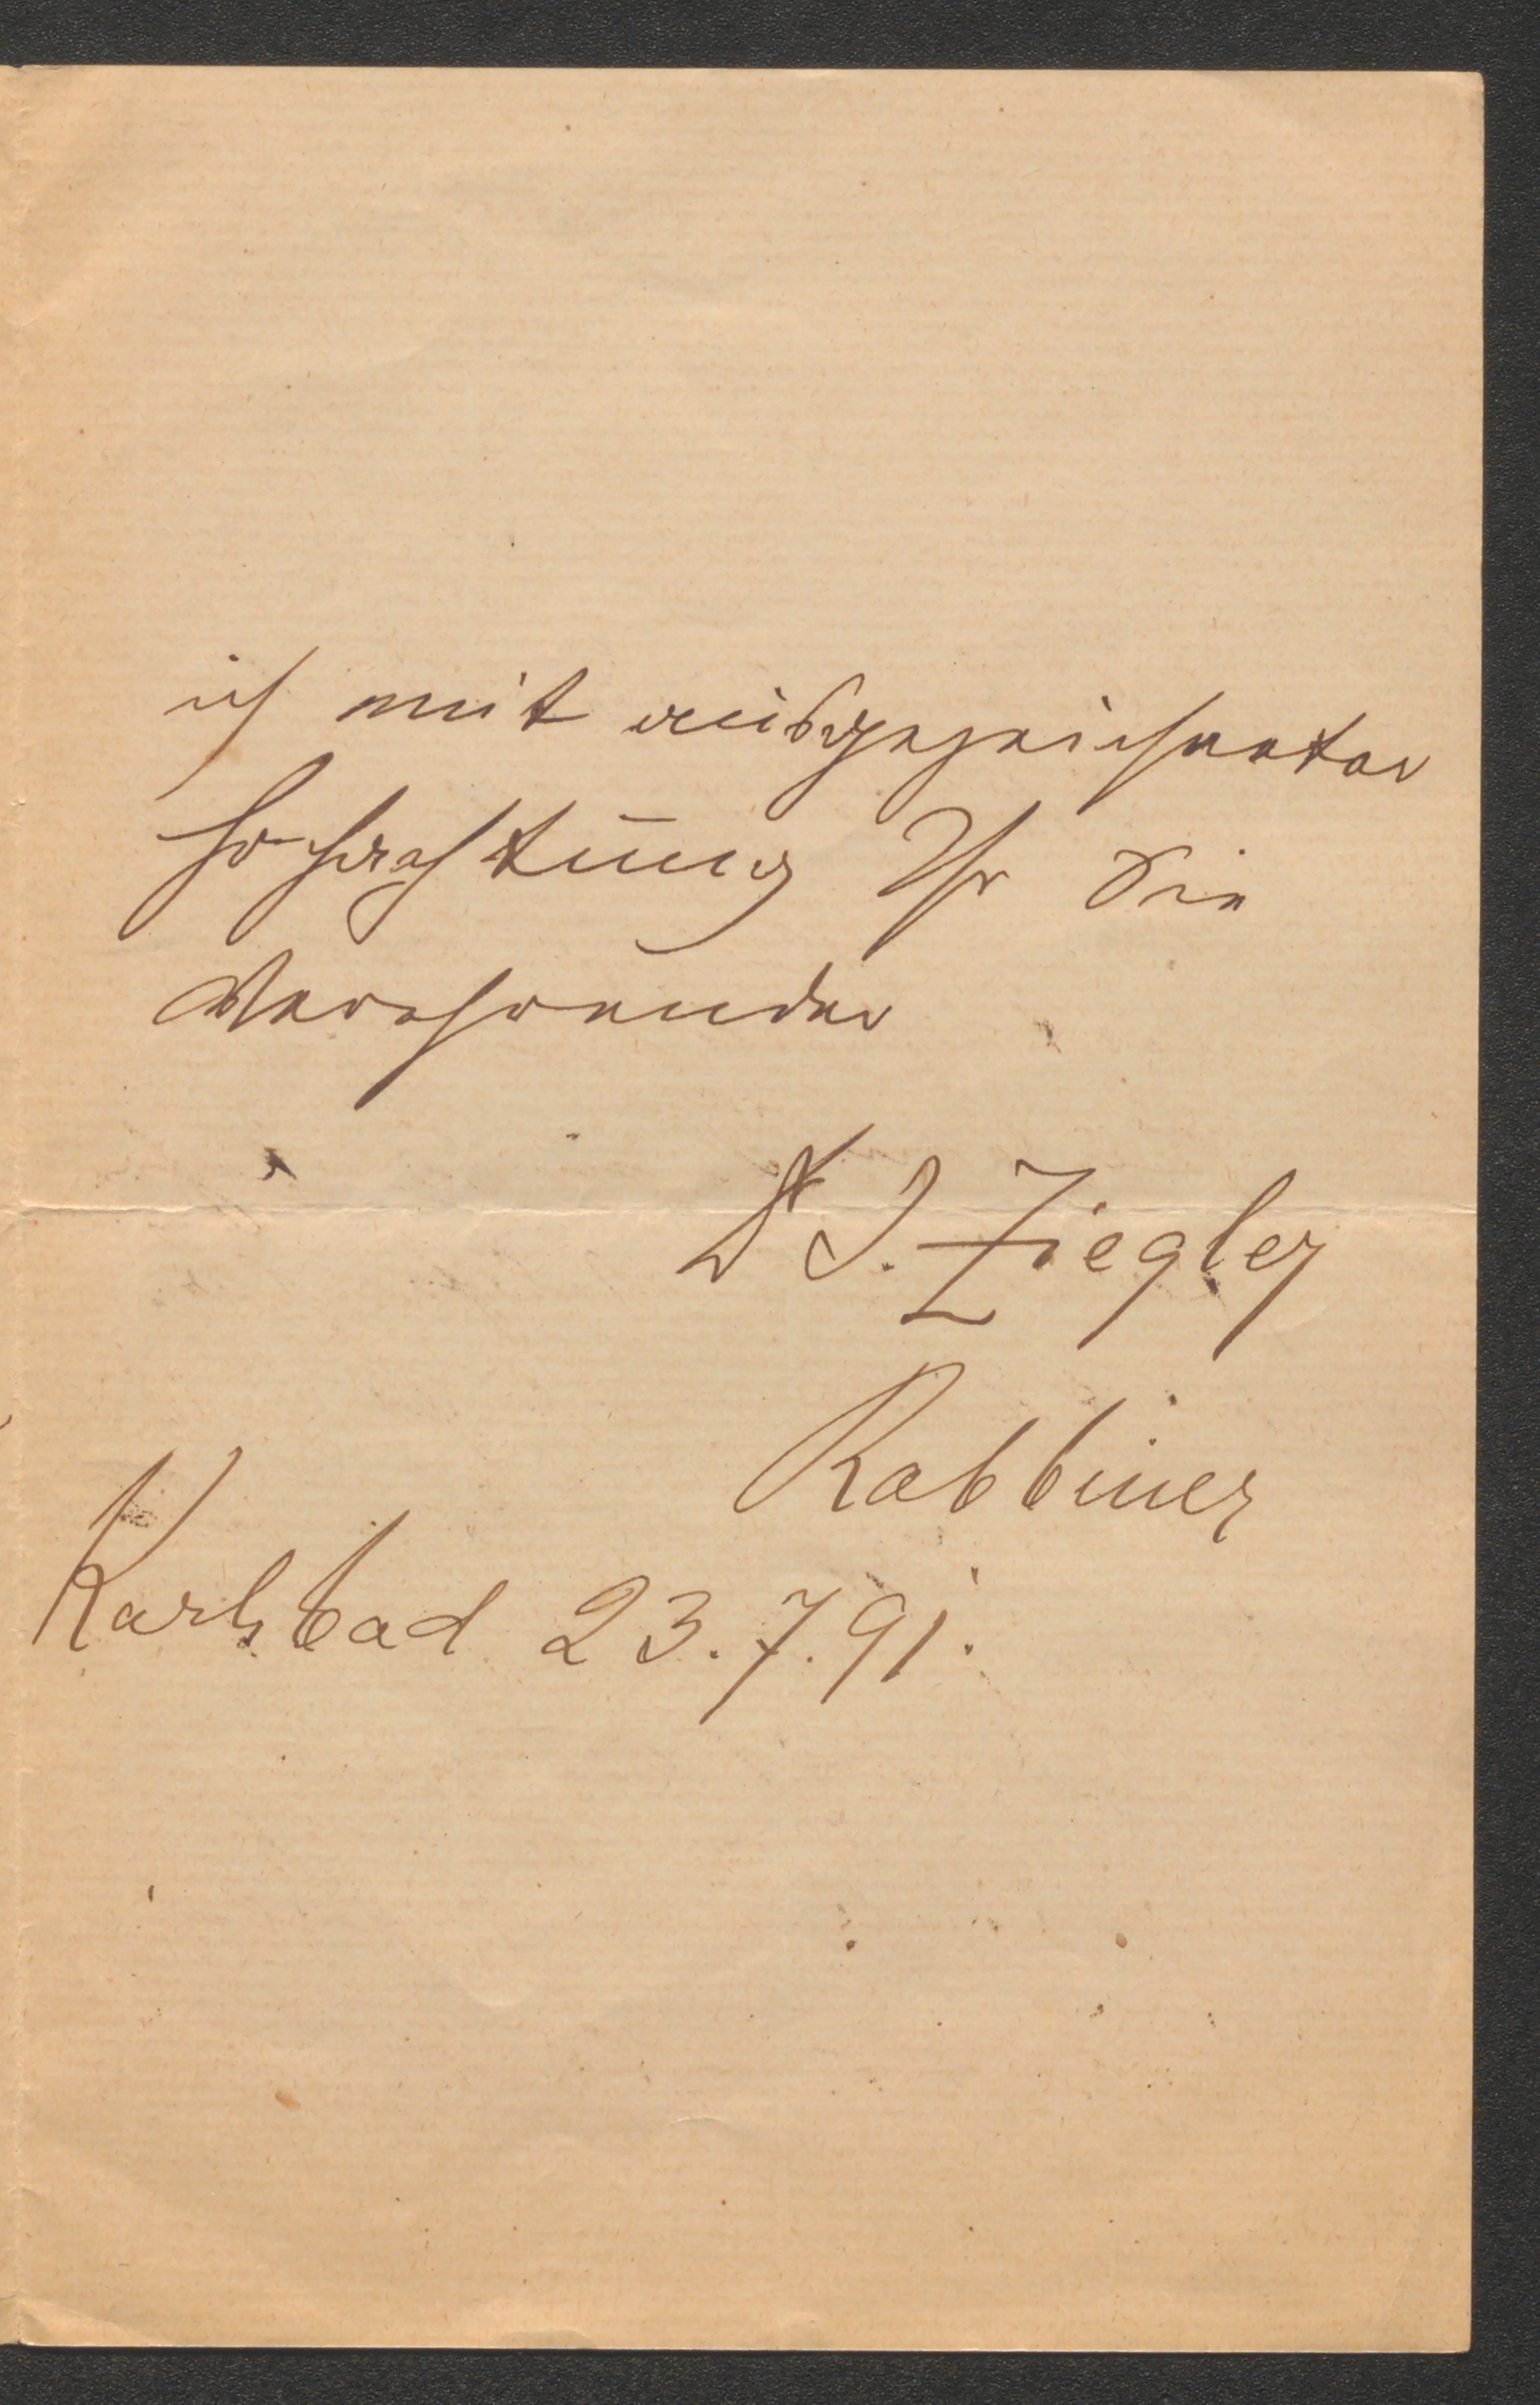 ich mit ausgezeichneter
Hochachtung Ihr Sie
Verehrender
Dr J. Ziegler
Rabbiner
Karlsbad 23.7.91.